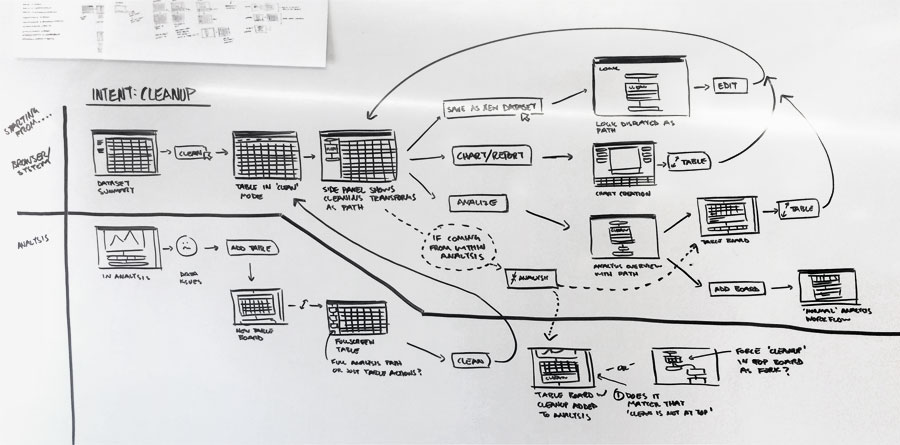 INTENT: CLEANUP
STARTING
FROM....
BROWSER/
SYSTEM
CLEAN
DATASET
SUMMARY
TABLE IN 'CLEAN'
MODE
SIDE PANEL SHOWS
CLEANING TRANSFORMS
AS PATH
SAVE AS NEW DATASET
CHART/REPORT
ANALYZE
LOGIC
CLEAN
LOGIC DISPLAYED AS
PATH
EDIT
CHART CREATION
TABLE
ANALYSIS OVERVIEW
WITH PATH
TABLE BOARD
TABLE
ADD BOARD
'NORMAL' ANALYSIS
WORKFLOW
IF COMING
FROM WITHIN
ANALYSIS
ANALYSIS
ANALYSIS
IN ANALYSIS
DATA
ISSUES
ADD TABLE
NEW TABLE
BOARD
FULLSCREEN
TABLE
FULL ANALYSIS PATH
OR JUST TABLE ACTIONS?
CLEAN
TABLE BOARD W/
CLEANUP ADDED
TO ANALYSIS
OR
1 DOES IT
MATTER THAT
'CLEAN IS NOT AT TOP'
FORCE 'CLEANUP'
IN TOP BOARD
AS FORK?